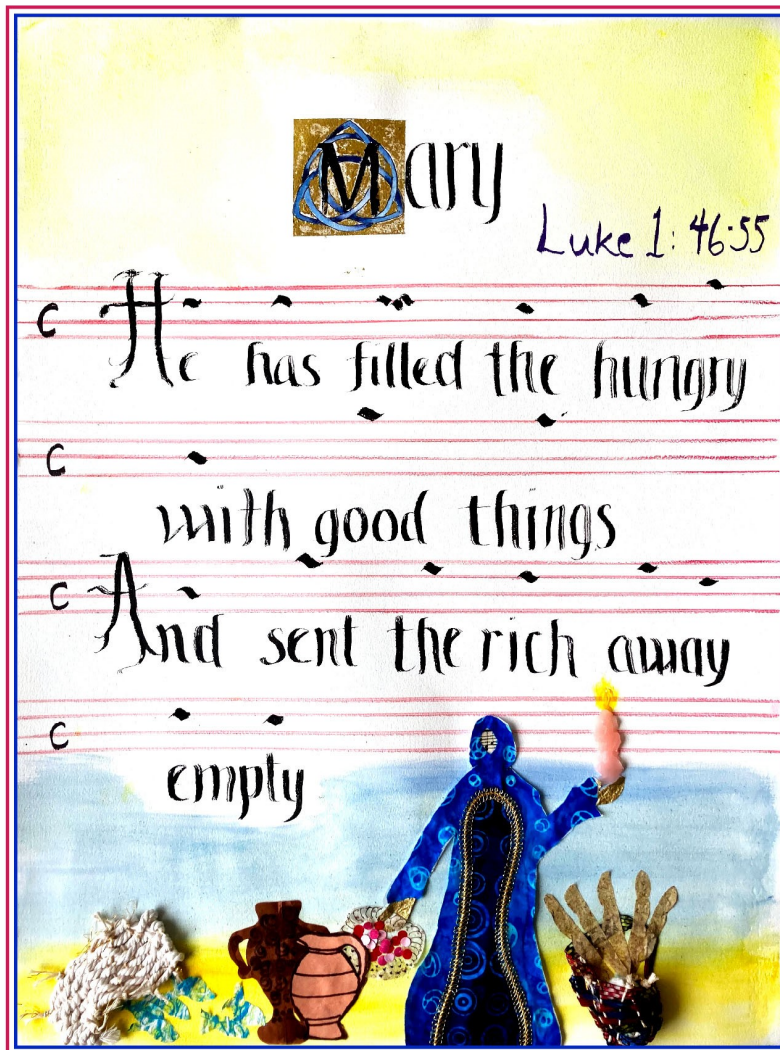 Mary
Luke 1: 46-55
C
He has filled the hungry
C
with good things
C
And sent the rich away
C
empty